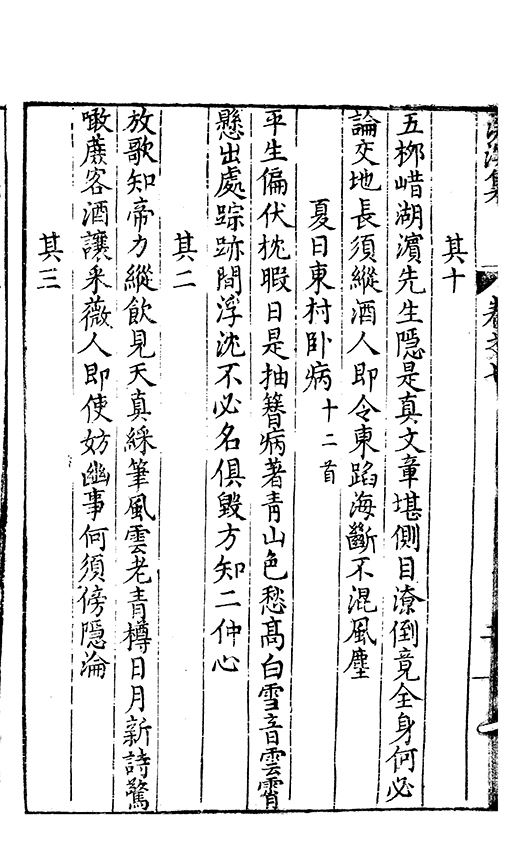 其十
五栁㟙湖濵先生隠是真文章堪側目潦倒竟全身何必
論交地長須縱酒人即令東蹈海斷不混風塵
夏日東村卧病十二首
平生偏伏枕暇日是抽簪病著青山色愁髙白雪音雲霄
懸出處踪跡間浮沈不必名俱毀方知二仲心
其二
放歌知帝力縱飲見天真綵筆風雲老青樽日月新詩驚
噉蔗客酒讓采薇人即使妨幽事何須傍隠淪
其三